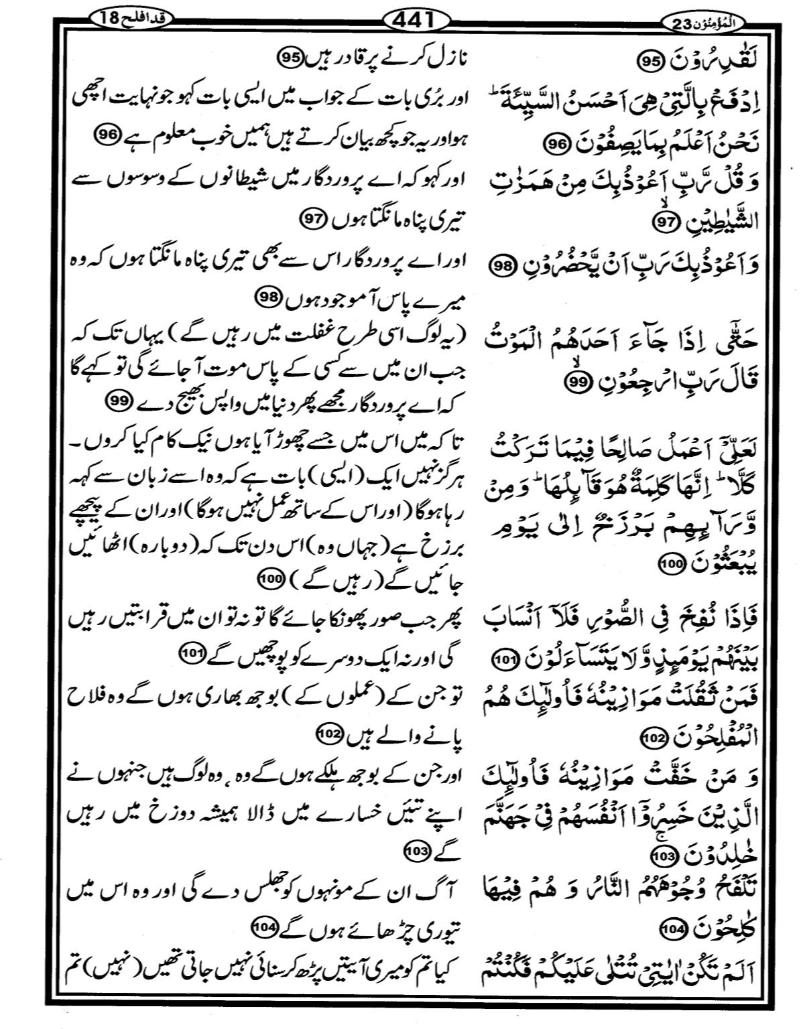 المؤمنون 23
441
قد افلح 18
لَقٰدِرُوْنَ 95
نازل کرنے پر قادر ہیں 95
اِدْفَعْ بِالَّتِیْ هِیَ اَحْسَنُ السَّیِّئَةَ ؕ
نَحْنُ اَعْلَمُ بِمَا یَصِفُوْنَ 96
اور بُری بات کے جواب میں ایسی بات کہو جو نہایت اچھی
ہو اور یہ جو کچھ بیان کرتے ہیں ہمیں خوب معلوم ہے 96
وَ قُلْ رَّبِّ اَعُوْذُ بِكَ مِنْ هَمَزٰتِ
الشَّیٰطِیْنِ ۙ 97
اور کہو کہ اے پروردگار میں شیطانوں کے وسوسوں سے
تیری پناہ مانگتا ہوں 97
وَ اَعُوْذُ بِكَ رَبِّ اَنْ یَّحْضُرُوْنِ 98
اور اے پروردگار اس سے بھی تیری پناہ مانگتا ہوں کہ وہ
میرے پاس آ موجود ہوں 98
حَتّٰۤی اِذَا جَآءَ اَحَدَهُمُ الْمَوْتُ
قَالَ رَبِّ ارْجِعُوْنِ ۙ 99
(یہ لوگ اسی طرح غفلت میں رہیں گے) یہاں تک کہ
جب ان میں سے کسی کے پاس موت آ جائے گی تو کہے گا
کہ اے پروردگار مجھے پھر دنیا میں واپس بھیج دے 99
لَعَلِّیْۤ اَعْمَلُ صَالِحًا فِیْمَا تَرَكْتُ
كَلَّا ؕ اِنَّهَا كَلِمَةٌ هُوَ قَآىِٕلُهَا ؕ وَ مِنْ
وَّرَآىِٕهِمْ بَرْزَخٌ اِلٰی یَوْمِ
یُبْعَثُوْنَ 100
تاکہ میں اس میں جسے چھوڑ آیا ہوں نیک کام کیا کروں ۔
ہرگز نہیں ایک (ایسی) بات ہے کہ وہ اسے زبان سے کہہ
رہا ہوگا (اور اس کے ساتھ عمل نہیں ہوگا) اور ان کے پیچھے
برزخ ہے (جہاں وہ) اس دن تک کہ (دوبارہ) اٹھائیں
جائیں گے (رہیں گے) 100
فَاِذَا نُفِخَ فِی الصُّوْرِ فَلَاۤ اَنْسَابَ
بَیْنَهُمْ یَوْمَىِٕذٍ وَّ لَا یَتَسَآءَلُوْنَ 101
پھر جب صور پھونکا جائے گا تو نہ تو ان میں قرابتیں رہیں
گی اور نہ ایک دوسرے کو پوچھیں گے 101
فَمَنْ ثَقُلَتْ مَوَازِیْنُهٗ فَاُولٰٓىِٕكَ هُمُ
الْمُفْلِحُوْنَ 102
تو جن کے (عملوں کے) بوجھ بھاری ہوں گے وہ فلاح
پانے والے ہیں 102
وَ مَنْ خَفَّتْ مَوَازِیْنُهٗ فَاُولٰٓىِٕكَ
الَّذِیْنَ خَسِرُوْۤا اَنْفُسَهُمْ فِیْ جَهَنَّمَ
خٰلِدُوْنَ ۚ 103
اور جن کے بوجھ ہلکے ہوں گے وہ، وہ لوگ ہیں جنہوں نے
اپنے تئیں خسارے میں ڈالا ہمیشہ دوزخ میں رہیں
گے 103
تَلْفَحُ وُجُوْهَهُمُ النَّارُ وَ هُمْ فِیْهَا
كٰلِحُوْنَ 104
آگ ان کے مونہوں کو جھلس دے گی اور وہ اس میں
تیوری چڑھائے ہوں گے 104
اَلَمْ تَكُنْ اٰیٰتِیْ تُتْلٰی عَلَیْكُمْ فَكُنْتُمْ
کیا تم کو میری آیتیں پڑھ کر سنائی نہیں جاتی تھیں (نہیں) تم